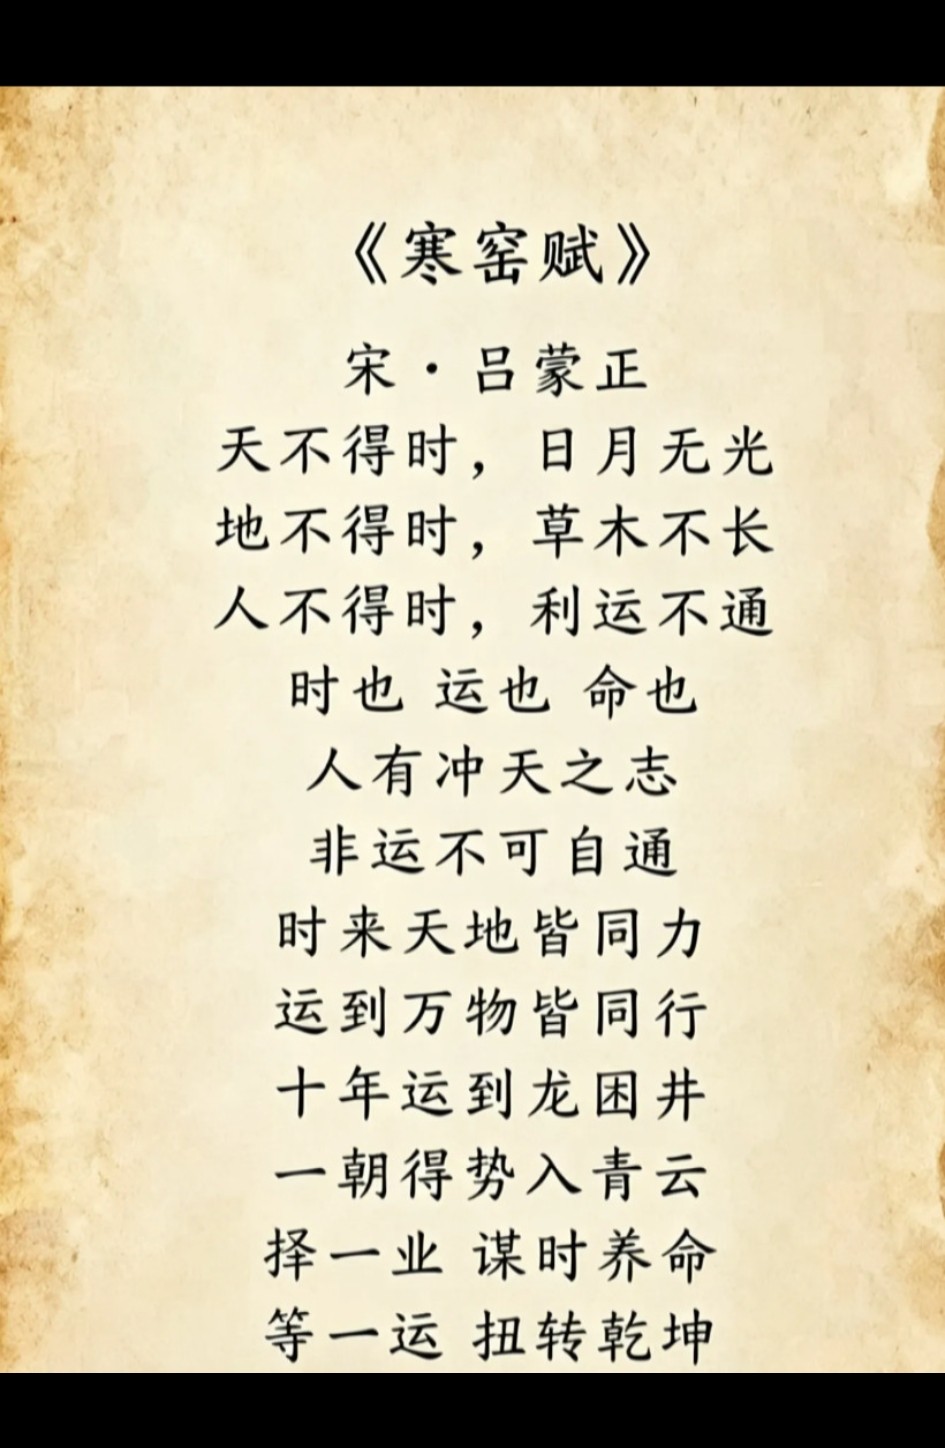 《寒窑赋》
宋·吕蒙正
天不得时，日月无光
地不得时，草木不长
人不得时，利运不通
时也 运也 命也
人有冲天之志
非运不可自通
时来天地皆同力
运到万物皆同行
十年运到龙困井
一朝得势入青云
择一业 谋时养命
等一运 扭转乾坤